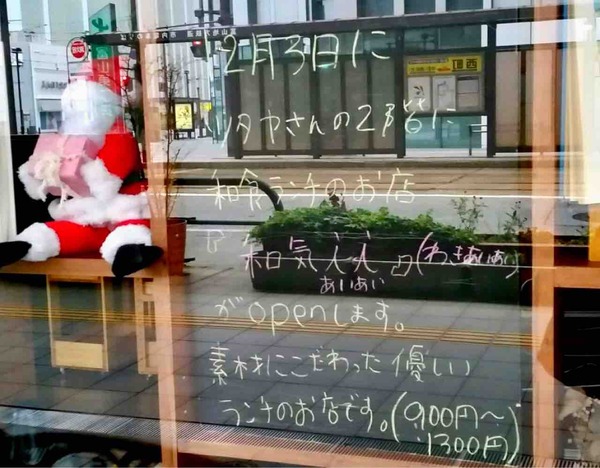 2月3日に
ツタヤさんの2階に
和食ランチのお店
和気 (わきあいあい)
あいあい
がopenします。
素材にこだわった優しい
ランチのお店です。(900円〜
1300円)
西町